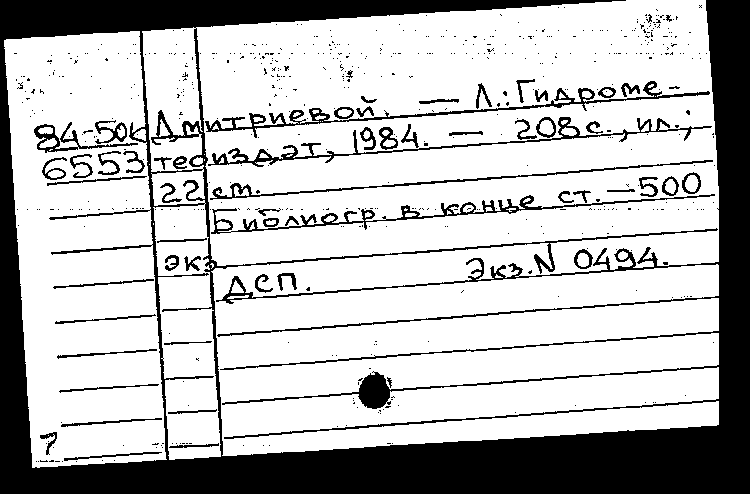 84-50к Дмитриевой. — Л.: Гидроме-
6553 теоиздат, 1984. — 208 с., ил.;
22 см.
Библиогр. в конце ст. — 500
экз
ДСП. Экз. N 0494.
7